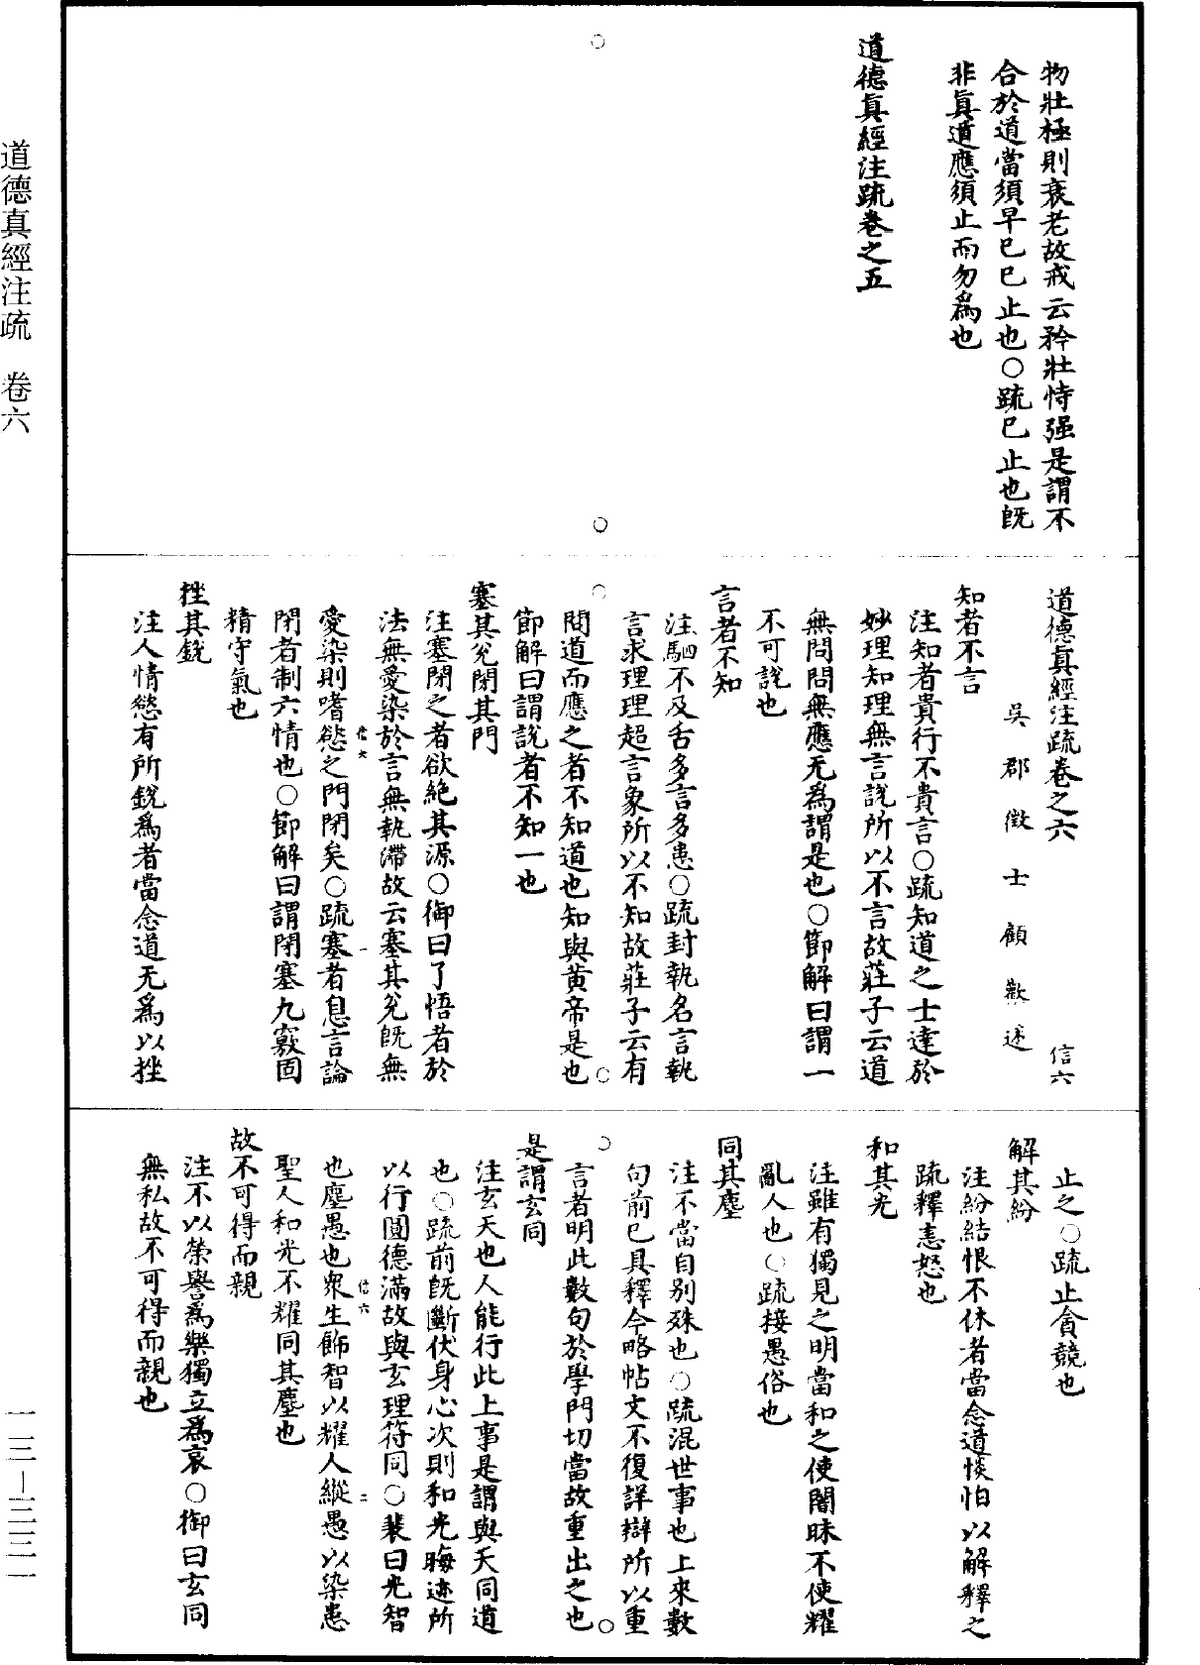 物壯極則衰老故戒云矜壯恃强是謂不
合於道當須早已已止也○疏已止也旣
非眞道應須止而勿爲也
道德眞經注疏卷之五
道德眞經注疏卷之六 信六
吳郡徵士顧歡述
知者不言
注知者貴行不貴言○疏知道之士達於
妙理知理無言說所以不言故莊子云道
無問問無應无為謂是也○節解曰謂一
不可說也
言者不知
注駟不及舌多言多患○疏封執名言執
言求理理超言象所以不知故莊子云有
問道而應之者不知道也知與黄帝是也
節解曰謂說者不知一也
塞其兌閉其門
注塞閉之者欲絶其源○御曰了悟者於
法無愛染於言無執滯故云塞其兌旣無
信六 一
愛染則嗜慾之門閉矣○疏塞者息言論
閉者制六情也○節解曰謂閉塞九竅固
精守氣也
挫其銳
注人情慾有所銳爲者當念道无爲以挫
止之○疏止貪競也
解其紛
注紛結恨不休者當念道惔怕以解釋之
疏釋恚怒也
和其光
注雖有獨見之明當和之使闇昧不使耀
亂人也○疏接愚俗也
同其塵
注不當自別殊也○疏混世事也上來數
句前已具釋今略帖文不復詳辯所以重
言者明此數句於學門切當故重出之也
是謂玄同
注玄天也人能行此上事是謂與天同道
也○疏前旣斷伏身心次則和光晦迹所
以行圓德滿故與玄理符同○裴曰光智
信六 二
也塵愚也衆生飾智以耀人縱愚以染患
聖人和光不耀同其塵也
故不可得而親
注不以榮譽爲樂獨立爲哀○御曰玄同
無私故不可得而親也
道德真經注疏 卷六
一三—三三一